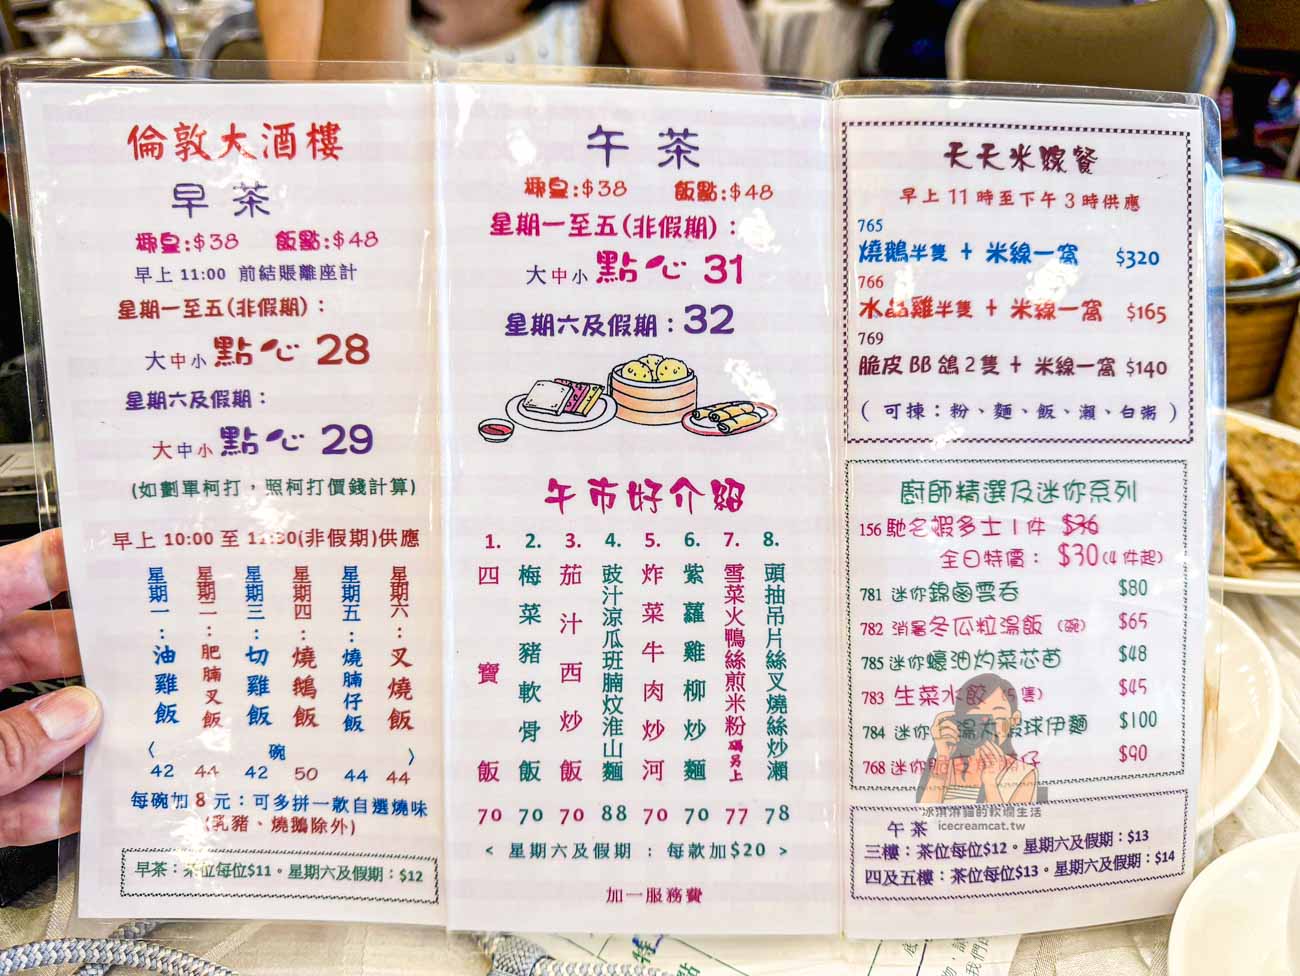 倫敦大酒樓
早茶
椰皇:$38 飯點:$48
早上 11:00 前結賬離座計
星期一至五(非假期)：
大中小點心 28
星期六及假期：
大中小點心 29
(如劃單柯打，照柯打價錢計算)
早上 10:00 至 11:30(非假期)供應
星期一：油雞飯
星期二：肥腩叉飯
星期三：切雞飯
星期四：燒鵝飯
星期五：燒腩仔飯
星期六：叉燒飯
〈 碗 〉
42 44 42 50 44 44
每碗加 8 元：可多拼一款自選燒味
(乳豬、燒鵝除外)
早茶：茶位每位$11。星期六及假期：$12
午茶
椰皇:$38 飯點:$48
星期一至五(非假期)：
大中小點心 31
星期六及假期：32
午市好介紹
1. 四寶飯 70
2. 梅菜豬軟骨飯 70
3. 茄汁西炒飯 70
4. 豉汁涼瓜班腩炆淮山麵 88
5. 炸菜牛肉炒河 70
6. 紫蘿雞柳炒麵 70
7. 雪菜火鴨絲煎米粉 碼另上 77
8. 頭抽吊片絲叉燒絲炒瀨 78
< 星期六及假期：每款加$20 >
加一服務費
天天米嫁餐
早上 11 時至下午 3 時供應
765
燒鵝半隻 + 米線一窩 $320
766
水晶雞半隻 + 米線一窩 $165
769
脆皮 BB 鴿 2 隻 + 米線一窩 $140
( 可揀：粉、麵、飯、瀨、白粥 )
廚師精選及迷你系列
156 馳名蝦多士 1 件 $36
全日特價： $30(4 件起)
781 迷你錦鹵雲吞 $80
782 消暑冬瓜粒湯飯 (碗) $65
785 迷你蠔油灼菜芯苗 $48
783 生菜水餃 5 隻) $45
784 迷你 湯大 球伊麵 $100
768 迷你 仔 $90
冰淇淋貓的軟爛生活
icecreamcat.tw
午茶
三樓：茶位每位$12。星期六及假期：$13
四及五樓：茶位每位$13。星期六及假期：$14